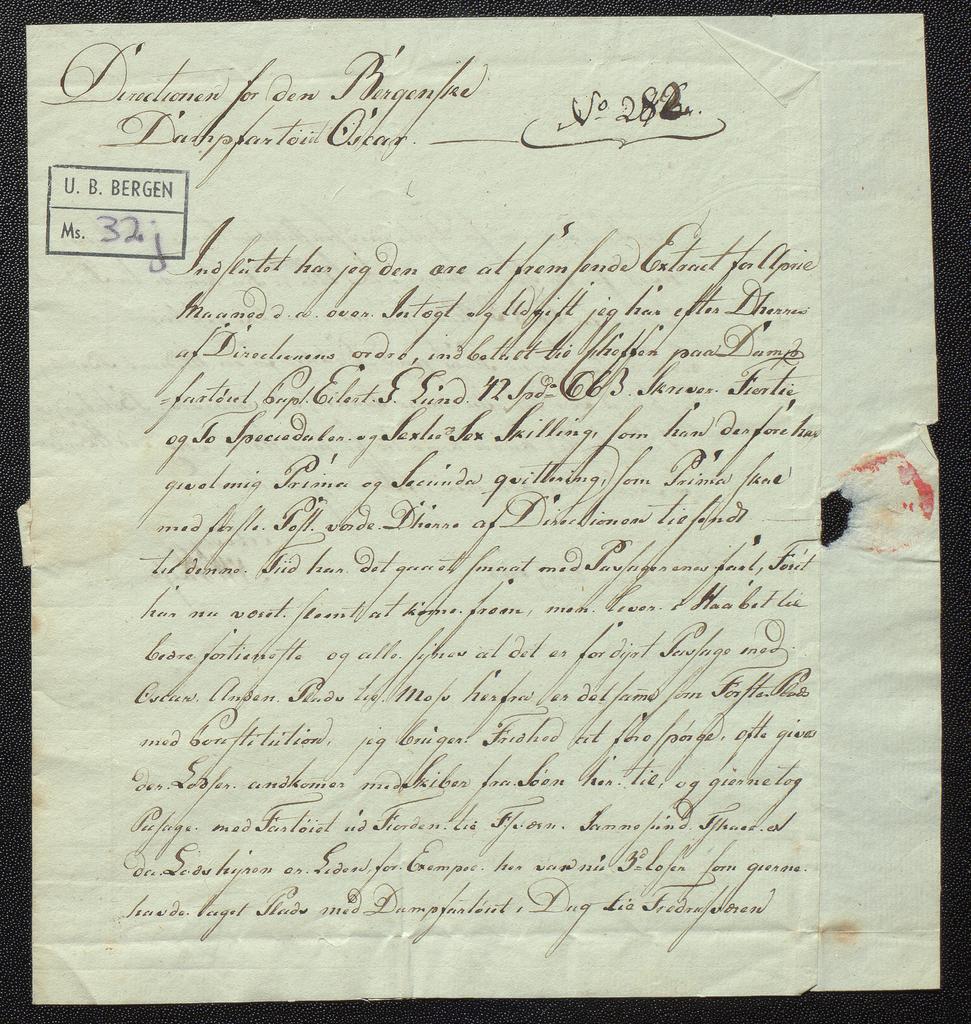 Directionen for den Bergenske
Dampfartöiet Oscar.
No 282.
U. B. BERGEN
Ms. 32j
Indslutet har jeg den ære at fremsende Extract for April
Maaned d. a. over Intægt og Udgift jeg har efter Dherrer
af Directionens ordre, indbetalt til Sheffen paa Damp
=fartöiet Capt. Eilert. S. Lund. 42 Spd 66 ß. Skriver Fiortie
og To Speciedaler og Sextie Sex Skilling, som han derfore har
givet mig Prima og Secunda qvittering, som Prima skal
med förste Post vorde Dherre af Directionen tilsendt
til denne Tiid har det gaaet smaat med Passagerenes fart, Foset
har nu været slemt at kome from, men lever i Haabet til
bedre fortieneste og alle synes at det er for dyrt Passage med
Oscar. Anden Plads til Moss herfra er det same som Forste Plads
med Constitution, jeg bruger Friehed at forespörge, ofte gives
der Lodser andkomer med Skiber fra Söen her til, og gierne tog
Passage med Fartöiet ud Fiorden til Tharn. Sannesund
da Lods hyren er Liden, for Exempel her var nu 3de Loser som gierne
havde taget Plads med Dampfartöiet i Dag til Fredrigsværn